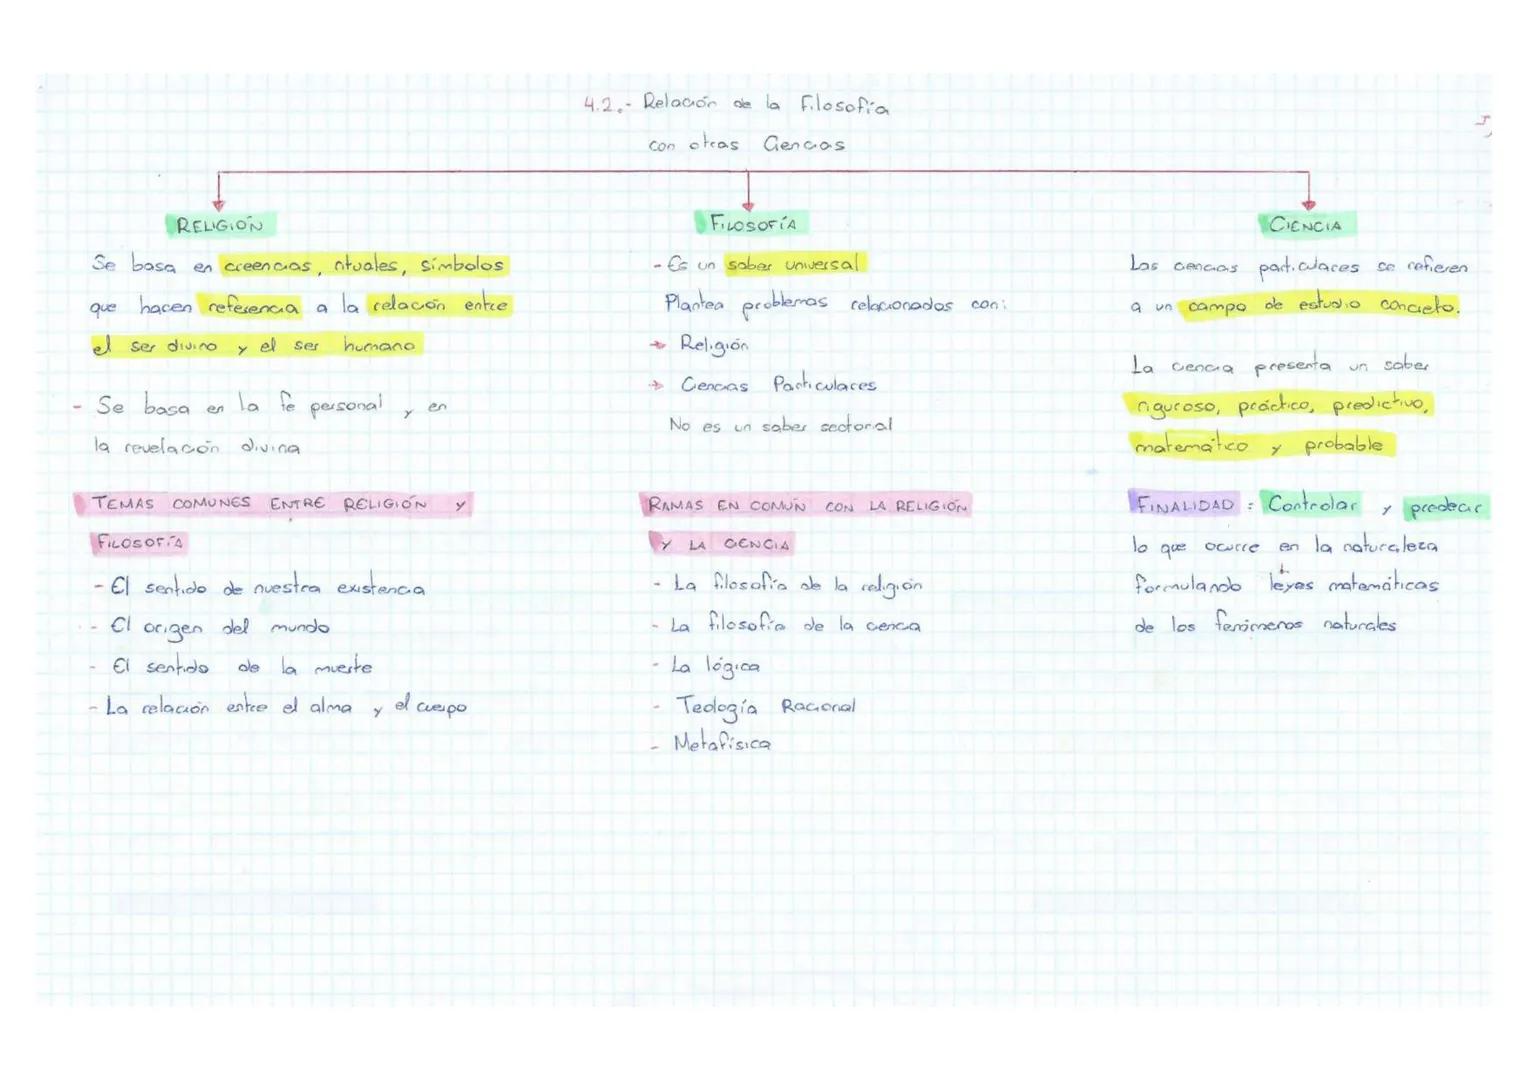 4.2.- Relación de la Filosofía
con otras Ciencias
RELIGIÓN
Se basa en creencias, rituales, símbolos
que hacen referencia a la relación entre
el ser divino y el ser humano
- Se basa en la fe personal y en
la revelación divina
TEMAS COMUNES ENTRE RELIGIÓN Y
FILOSOFÍA
- El sentido de nuestra existencia
- El origen del mundo
- El sentido de la muerte
- La relación entre el alma y el cuerpo
FILOSOFÍA
- Es un saber universal
Plantea problemas relacionados con:
→ Religión
→ Ciencias Particulares
No es un saber sectorial
RAMAS EN COMÚN CON LA RELIGIÓN
Y LA CIENCIA
- La filosofía de la religión
- La filosofía de la ciencia
- La lógica
- Teología Racional
- Metafísica
CIENCIA
Las ciencias particulares se refieren
a un campo de estudio concreto.
La ciencia presenta un saber
riguroso, práctico, predictivo,
matemático y probable
FINALIDAD: Controlar y predecir
lo que ocurre en la naturaleza
formulando leyes matemáticas
de los fenómenos naturales